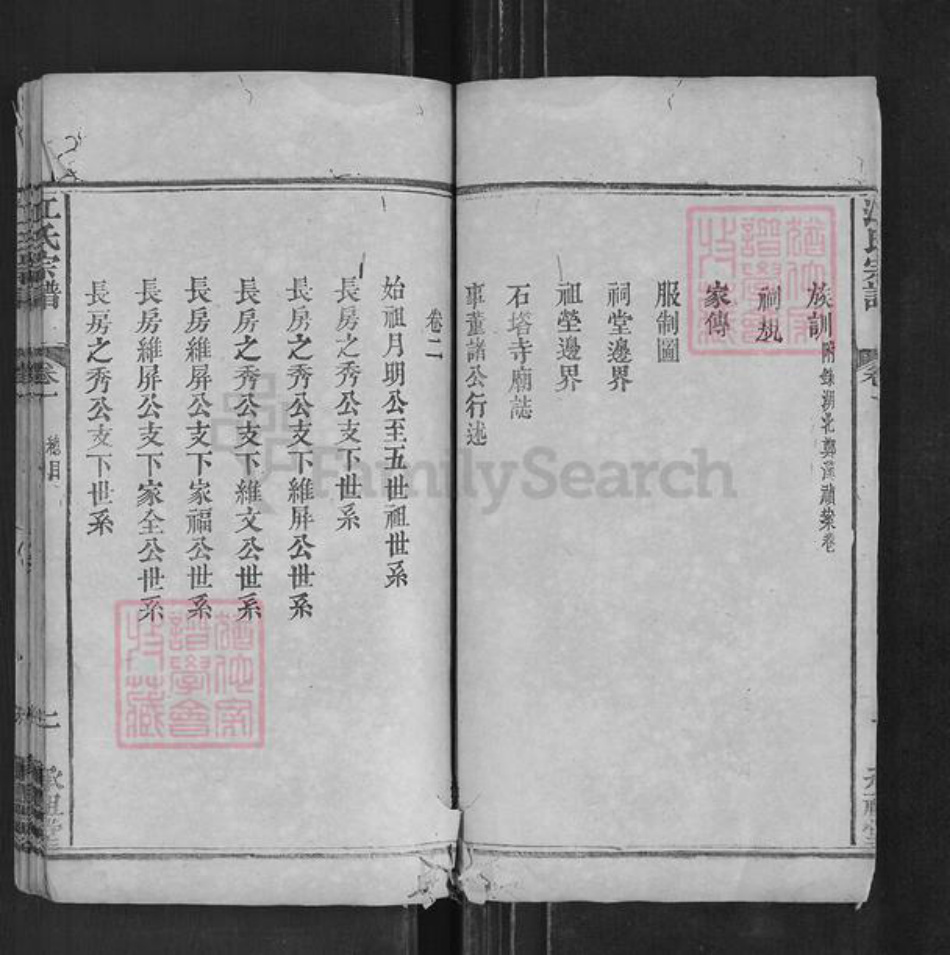 族訓附錄湖北鄖溪瀆業卷
祠規
家傳
服制圖
祠堂邊界
祖塋邊界
石塔寺廟誌
事董諸公行述
卷二
始祖月明公至五世祖世系
長房之秀公支下世系
長房之秀公支下維屏公世系
長房之秀公支下維文公世系
長房維屏公支下家福公世系
長房維屏公支下家全公世系
長房之秀公支下世系
江氏宗譜
卷一
總目
二
FamilySearch
猶他家譜學會收藏
猶他家譜學會收藏